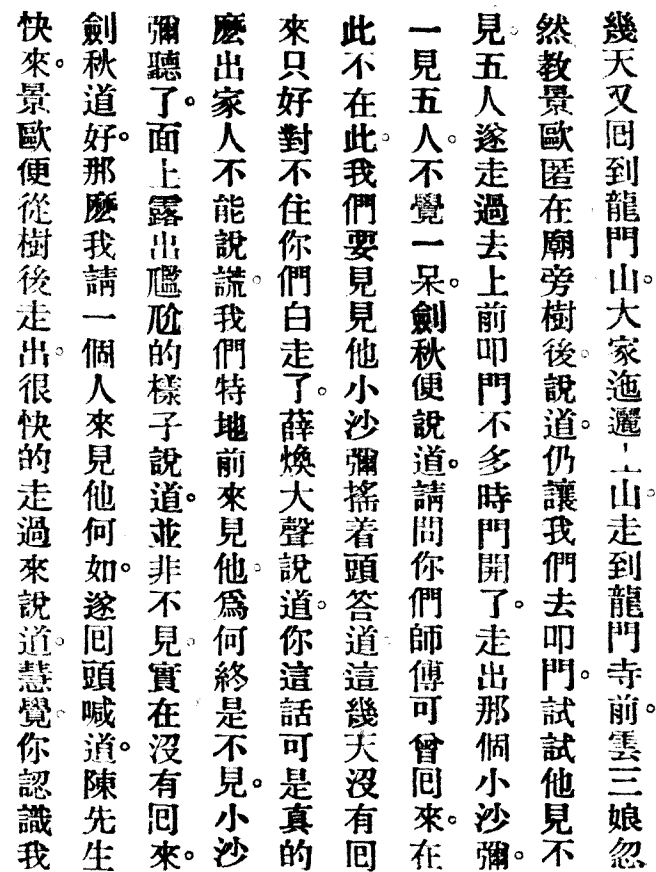 幾天又囘到龍門山。大家迤邐上山。走到龍門寺前。雲三娘忽
然教景歐匿在廟旁樹後。說道。仍讓我們去叩門。試試他見不
見。五人遂走過去上前叩門不多時門開了。走出那個小沙彌。
一見五人。不覺一呆。劍秋便說道。請問你們師傅可曾囘來。在
此不在此。我們要見見他小沙彌搖着頭答道這幾天沒有囘
來只好對不住你們白走了。薛煥大聲說道。你這話可是真的
麼出家人不能說謊。我們特地前來見他。爲何終是不見。小沙
彌聽了。面上露出尷尬的樣子說道。並非不見。實在沒有囘來。
劍秋道好。那麼我請一個人來見他何如。遂囘頭喊道。陳先生
快來。景歐便從樹後走出。很快的走過來說道。慧覺。你認識我